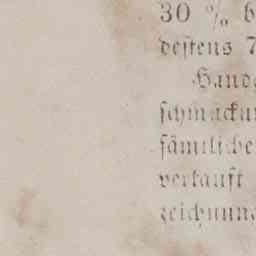 30 % b
destens 7
Hand
schmücku
sämtliche
verkauft
zeichnung